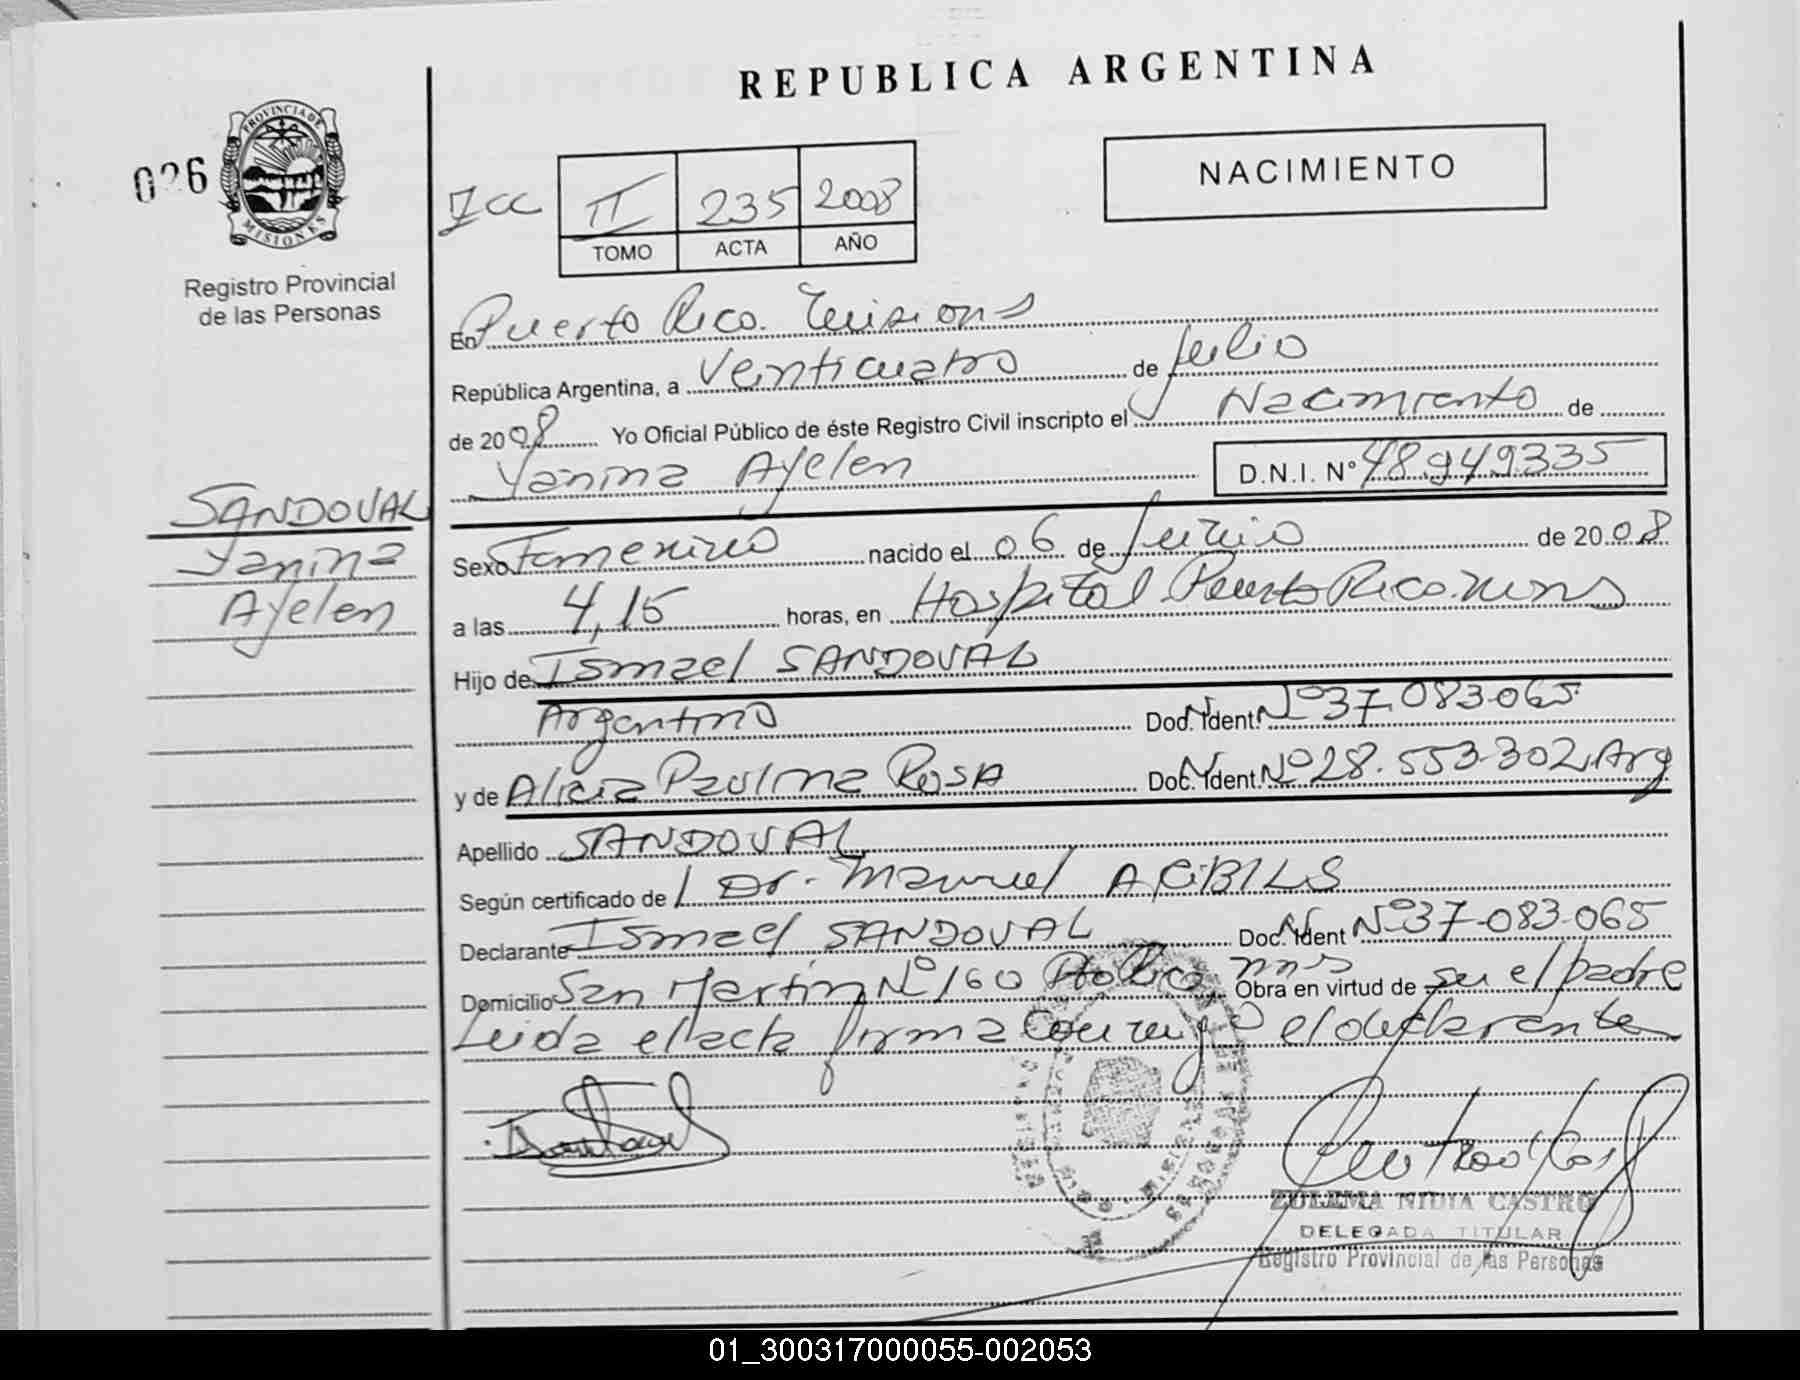 REPUBLICA ARGENTINA
026
PROVINCIA DE
MISIONES
Registro Provincial
de las Personas
II 235 2008
TOMO ACTA AÑO
NACIMIENTO
En Puerto Rico. Misiones
República Argentina, a Veinticuatro de Julio
de 2008 Yo Oficial Público de éste Registro Civil inscripto el Nacimiento de
Yanina Ayelen D.N.I. N° 48.949.335
SANDOVAL
Yanina
Ayelen
Sexo Femenino nacido el 06 de Junio de 2008
a las 4,15 horas, en Hospital Puerto Rico. Mnes
Hijo de Ismael SANDOVAL
Argentino Doc. Ident. N° 37.083.065
y de Alicia Paulina ROSA Doc. Ident. N° 28.553.302, Arg
Apellido SANDOVAL
Según certificado de l Dr. Manuel
Declarante Ismael SANDOVAL Doc. Ident N° 37.083.065
Domicilio San Martin N° 160 Pto Rico, mns Obra en virtud de ser el padre
Leida el acta firma conmigo el declarante
ZULEMA NIDIA CASTRO
DELEGADA TITULAR
Registro Provincial de las Personas
01_300317000055-002053